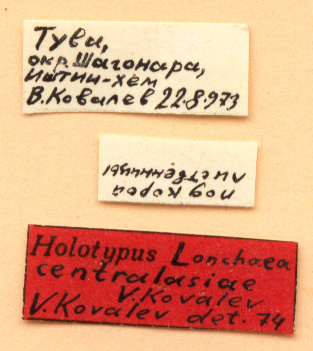 Тува,
окр. Шагонара,
Иштии-хем
В. Ковалев 22.8.973
под корой
лиственницы
Holotypus Lonchaea
centralasiae
V. Kovalev
V. Kovalev det. 74